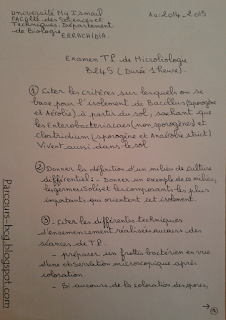 Université My Ismail
FACULTÉ des Sciences et
Techniques - Département
de Biologie
ERRACHIDIA.
AU: 2014 - 2015
Examen TP de Microbiologie
B245 (Durée 1 heure).
① Citer les critères sur lesquels on se
base pour l'isolement de Bacillus (sporogène
et Aérobie) à partir du sol, sachant que
les Enterobacteriacaes (non sporogènes) et
clostridium (sporogène et Anaérobie strict)
Vivent aussi dans le sol.
② Donner la définition d'un milieu de culture
différentiel : Donner un exemple de ce milieu,
le germe isolé et les composants les plus
importants qui orientent cet isolement.
③ - Citer les différentes techniques
d'ensemencement réalisées au cours des
séances de TP.
- préparer un frottis bactérien en vue
d'une observation microscopique après
coloration
- Si au cours de la coloration des spores,
Parcours-bcg.blogspot.com